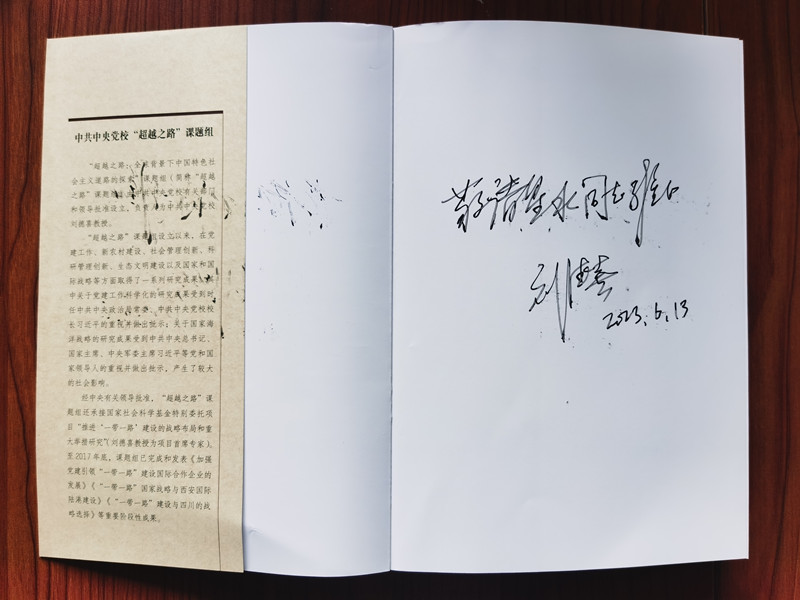 中共中央党校“超越之路”课题组
“超越之路：全球背景下中国特色社
会主义道路的探索”课题组（简称“超越
之路”课题组）由中共中央党校有关部门
和领导批准设立，负责人为中共中央党校
刘德喜教授。
“超越之路”课题组设立以来，在党
建工作、新农村建设、社会管理创新、科
研管理创新、生态文明建设以及国家和国
际战略等方面取得了一系列研究成果。其
中关于党建工作科学化的研究成果受到时
任中共中央政治局常委、中共中央党校校
长习近平的重视并做出批示；关于国家海
洋战略的研究成果受到中共中央总书记、
国家主席、中央军委主席习近平等党和国
家领导人的重视并做出批示，产生了较大
的社会影响。
经中央有关领导批准，“超越之路”课
题组还承接国家社会科学基金特别委托项
目“推进‘一带一路’建设的战略布局和重
大举措研究”（刘德喜教授为项目首席专家）。
至2017年底，课题组已完成和发表《加强
党建引领“一带一路”建设国际合作企业的
发展》《“一带一路”国家战略与西安国际
陆港建设》《“一带一路”建设与四川的战
略选择》等重要阶段性成果。
敬请 水同志雅正
刘德喜
2023.6.13